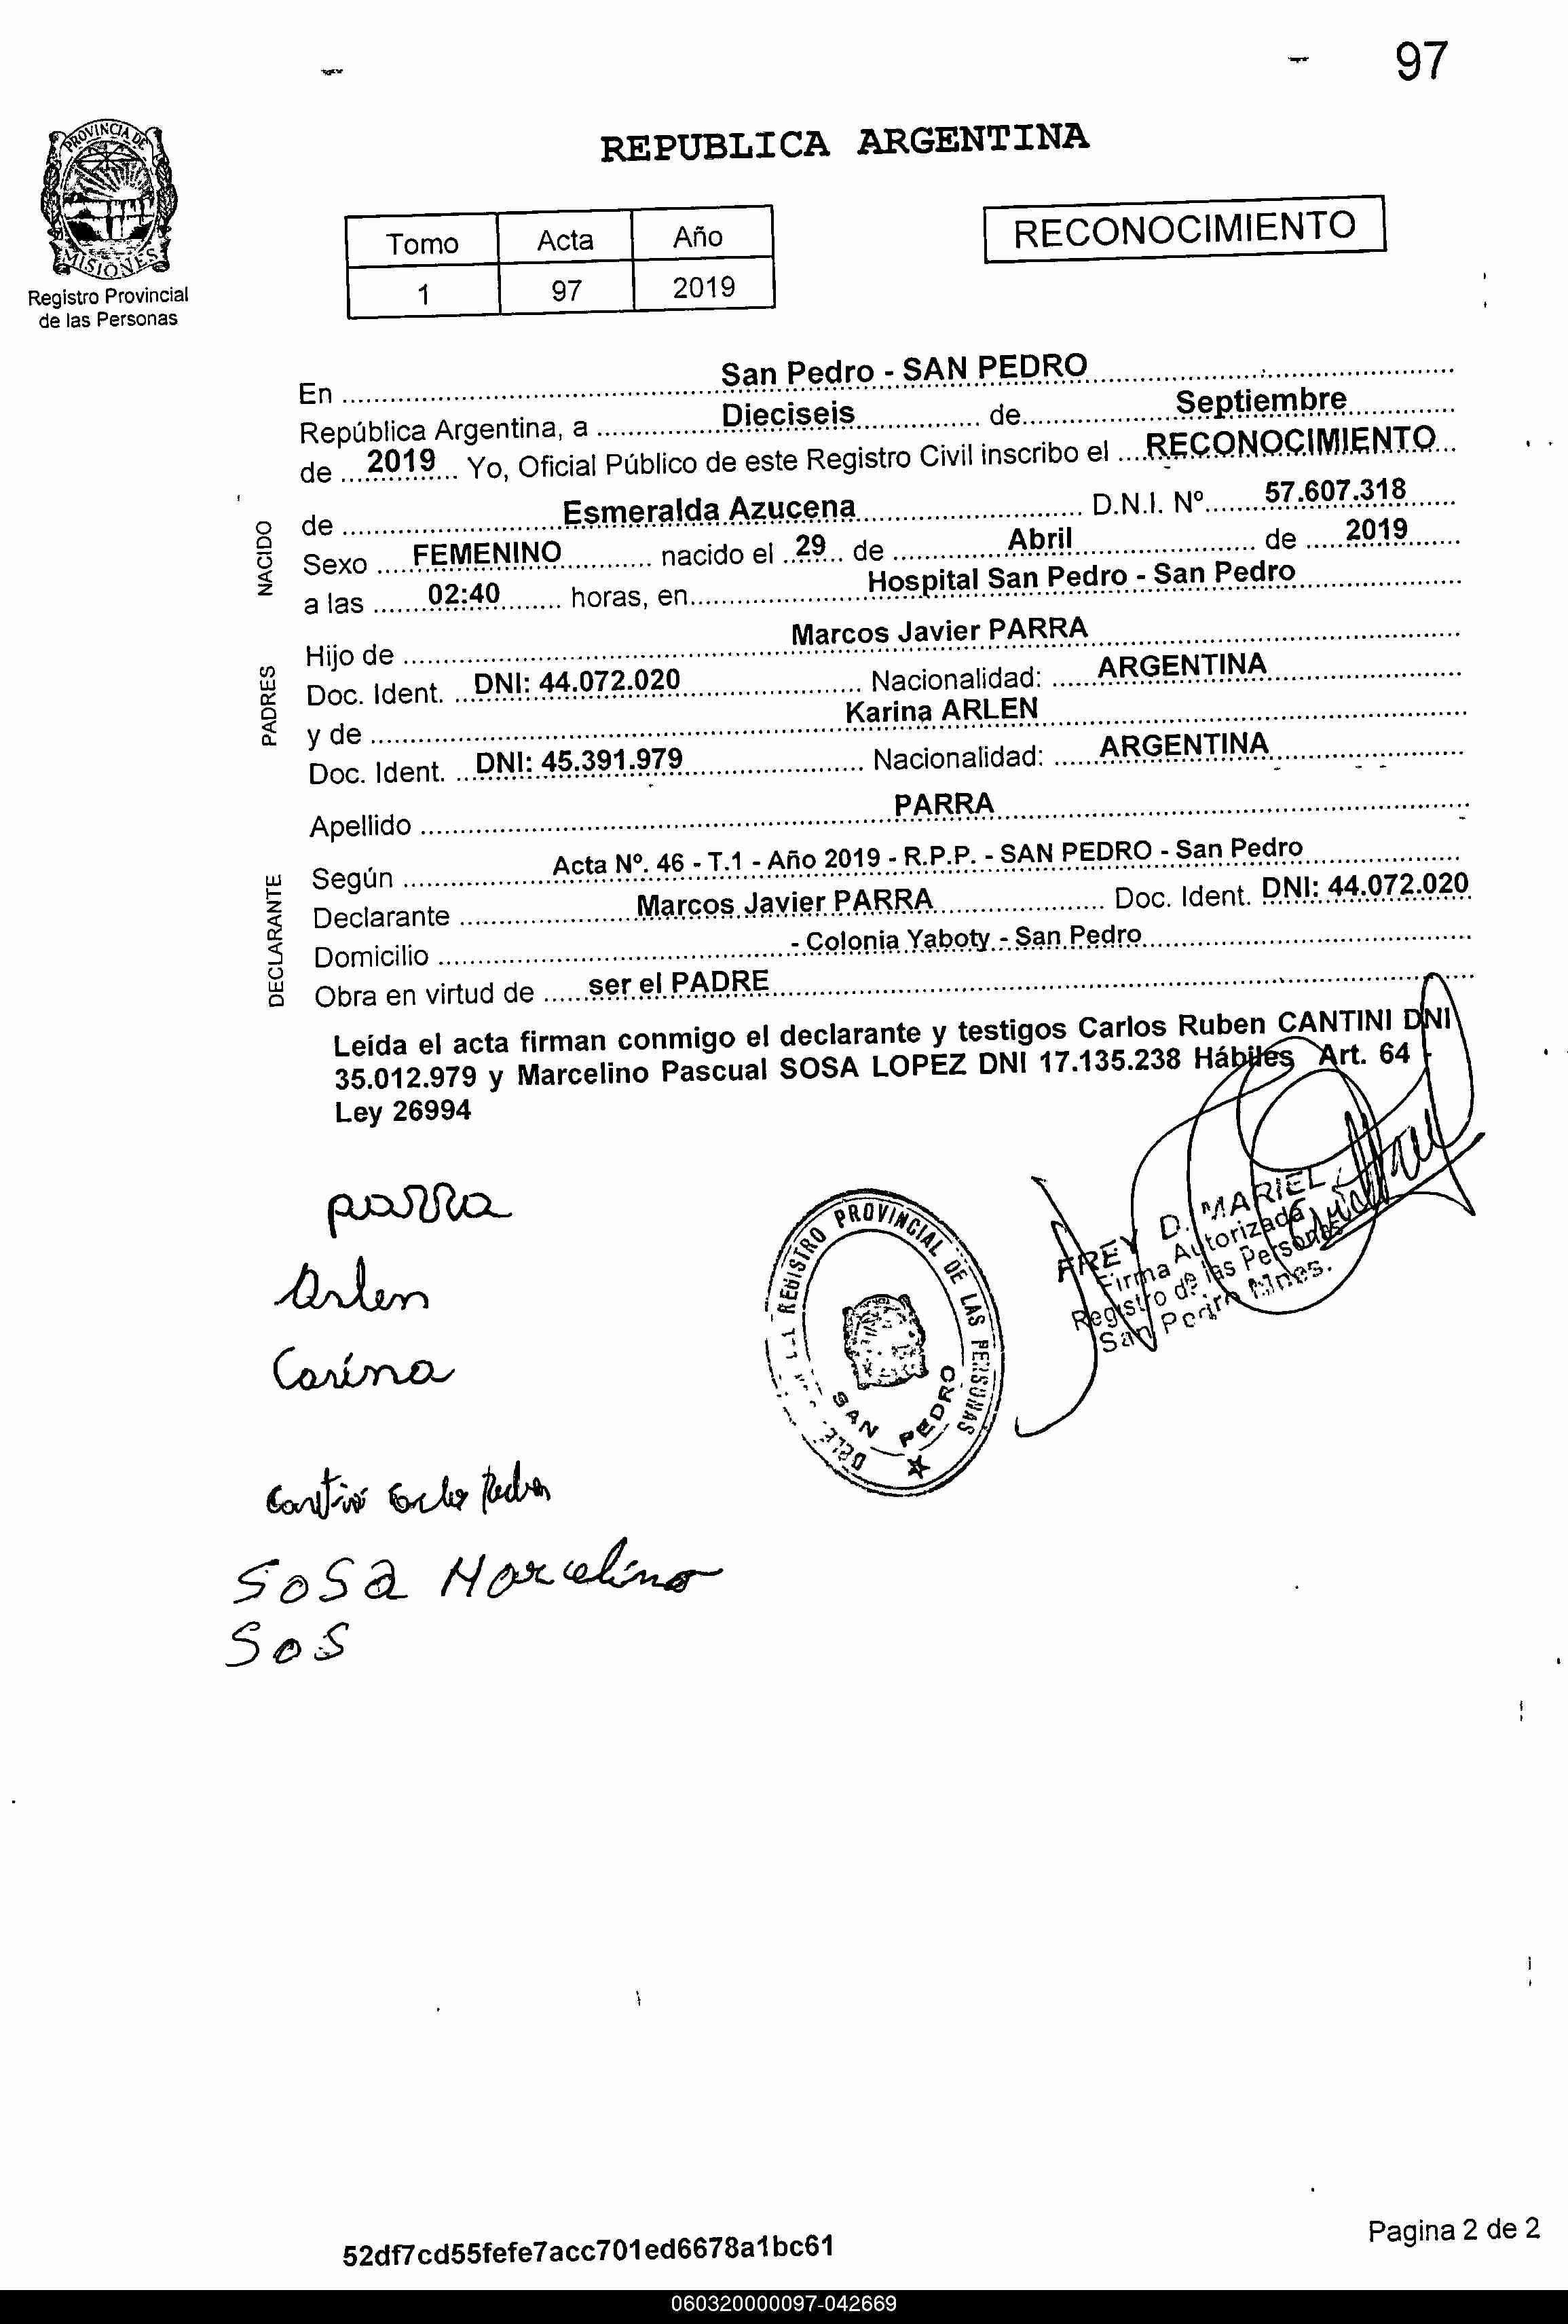 97
REPUBLICA ARGENTINA
PROVINCIA DE
MISIONES
Registro Provincial
de las Personas
Tomo Acta Año
1 97 2019
RECONOCIMIENTO
En San Pedro - SAN PEDRO
República Argentina, a Dieciseis de Septiembre
de 2019 Yo, Oficial Público de este Registro Civil inscribo el RECONOCIMIENTO
NACIDO
de Esmeralda Azucena D.N.I. Nº 57.607.318
Sexo FEMENINO nacido el 29 de Abril de 2019
a las 02:40 horas, en Hospital San Pedro - San Pedro
PADRES
Hijo de Marcos Javier PARRA
Doc. Ident. DNI: 44.072.020 Nacionalidad: ARGENTINA
y de Karina ARLEN
Doc. Ident. DNI: 45.391.979 Nacionalidad: ARGENTINA
Apellido PARRA
DECLARANTE
Según Acta Nº. 46 - T.1 - Año 2019 - R.P.P. - SAN PEDRO - San Pedro
Declarante Marcos Javier PARRA Doc. Ident. DNI: 44.072.020
Domicilio - Colonia Yaboty - San Pedro
Obra en virtud de ser el PADRE
Leída el acta firman conmigo el declarante y testigos Carlos Ruben CANTINI DNI
35.012.979 y Marcelino Pascual SOSA LOPEZ DNI 17.135.238 Hábiles Art. 64 -
Ley 26994
parra
Arlen
Carina
REGISTRO PROVINCIAL DE LAS PERSONAS
SAN PEDRO
FREY D. MARIEL
Firma Autorizada
Registro de las Personas
San Pedro Mnes.
Sosa Marcelino
Sos
52df7cd55fefe7acc701ed6678a1bc61
Pagina 2 de 2
060320000097-042669